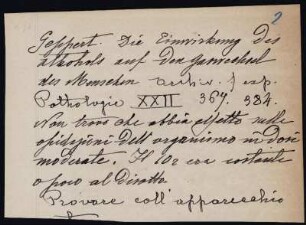 2
Geppert. Die Einwirkung des
Alkohols auf den Gaswechsel
des Menschen Archiv. f. exp.
Pathologie XXII 367. 384.
Non trova che abbia effetto nelle
ossidazioni dell'organismo in dosi
moderate. Il CO2 era costante
o poco al Disotto
Provare coll'apparecchio